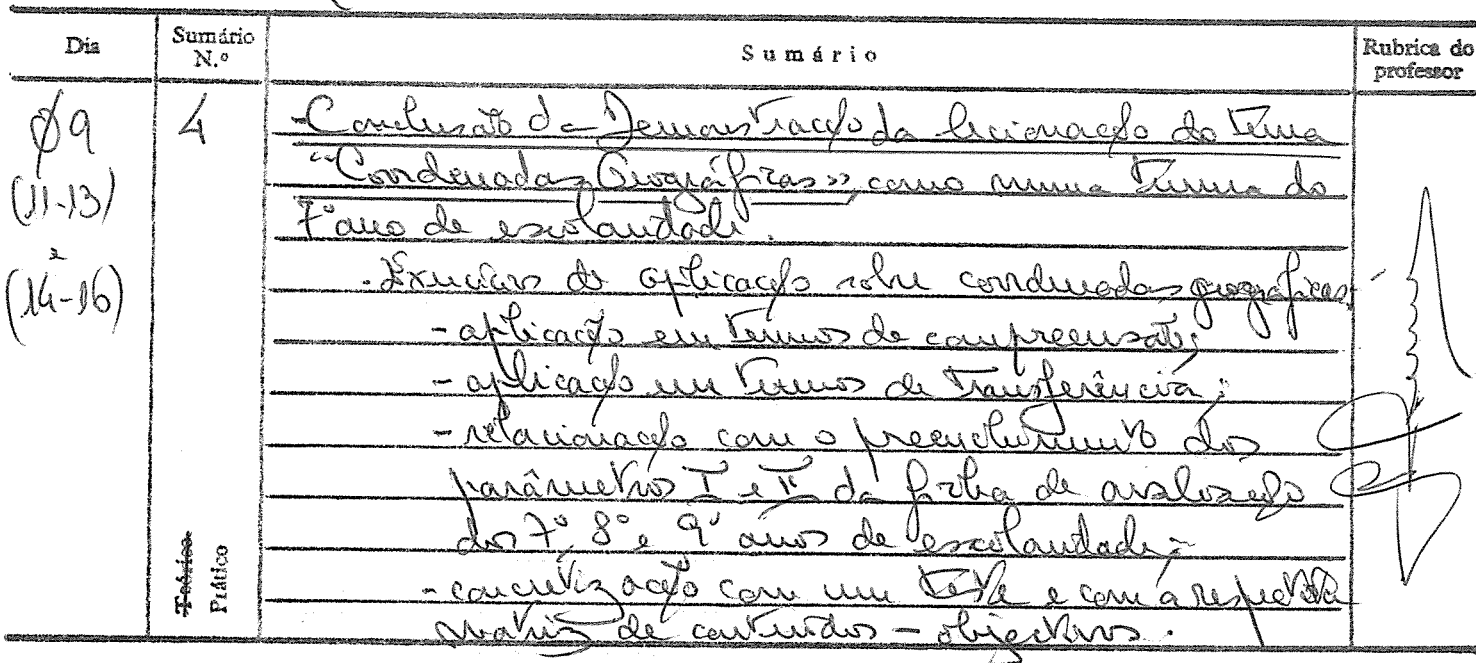 Dia Sumário N.º Sumário Rubrica do professor
09 4 - Conclusão da Demonstração da lecionação do tema
(11-13) "Coordenadas Geográficas", como numa turma do
7º ano de escolaridade.
(14-16) - Exercícios de aplicação sobre coordenadas geográficas:
- aplicação em termos de compreensão;
- aplicação em termos de transferência;
- relacionação com o preenchimento dos
parâmetros I e II da ficha de avaliação
dos 7º, 8º e 9º anos de escolaridade;
- concretização com um teste e com a respectiva
matriz de conteúdos - objectivos.
Teórico
Prático